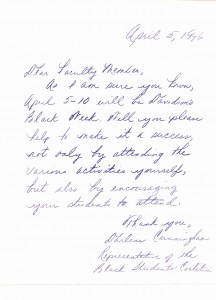 April 5, 1976
Dear Faculty Member,
As I am sure you know,
April 5-10 will be Davidson's
Black Week. Will you please
help to make it a success,
not only by attending the
various activities yourself,
but also by encouraging
your students to attend.
Thank you,
Cunningham
Representative of the
Black Students Coalition